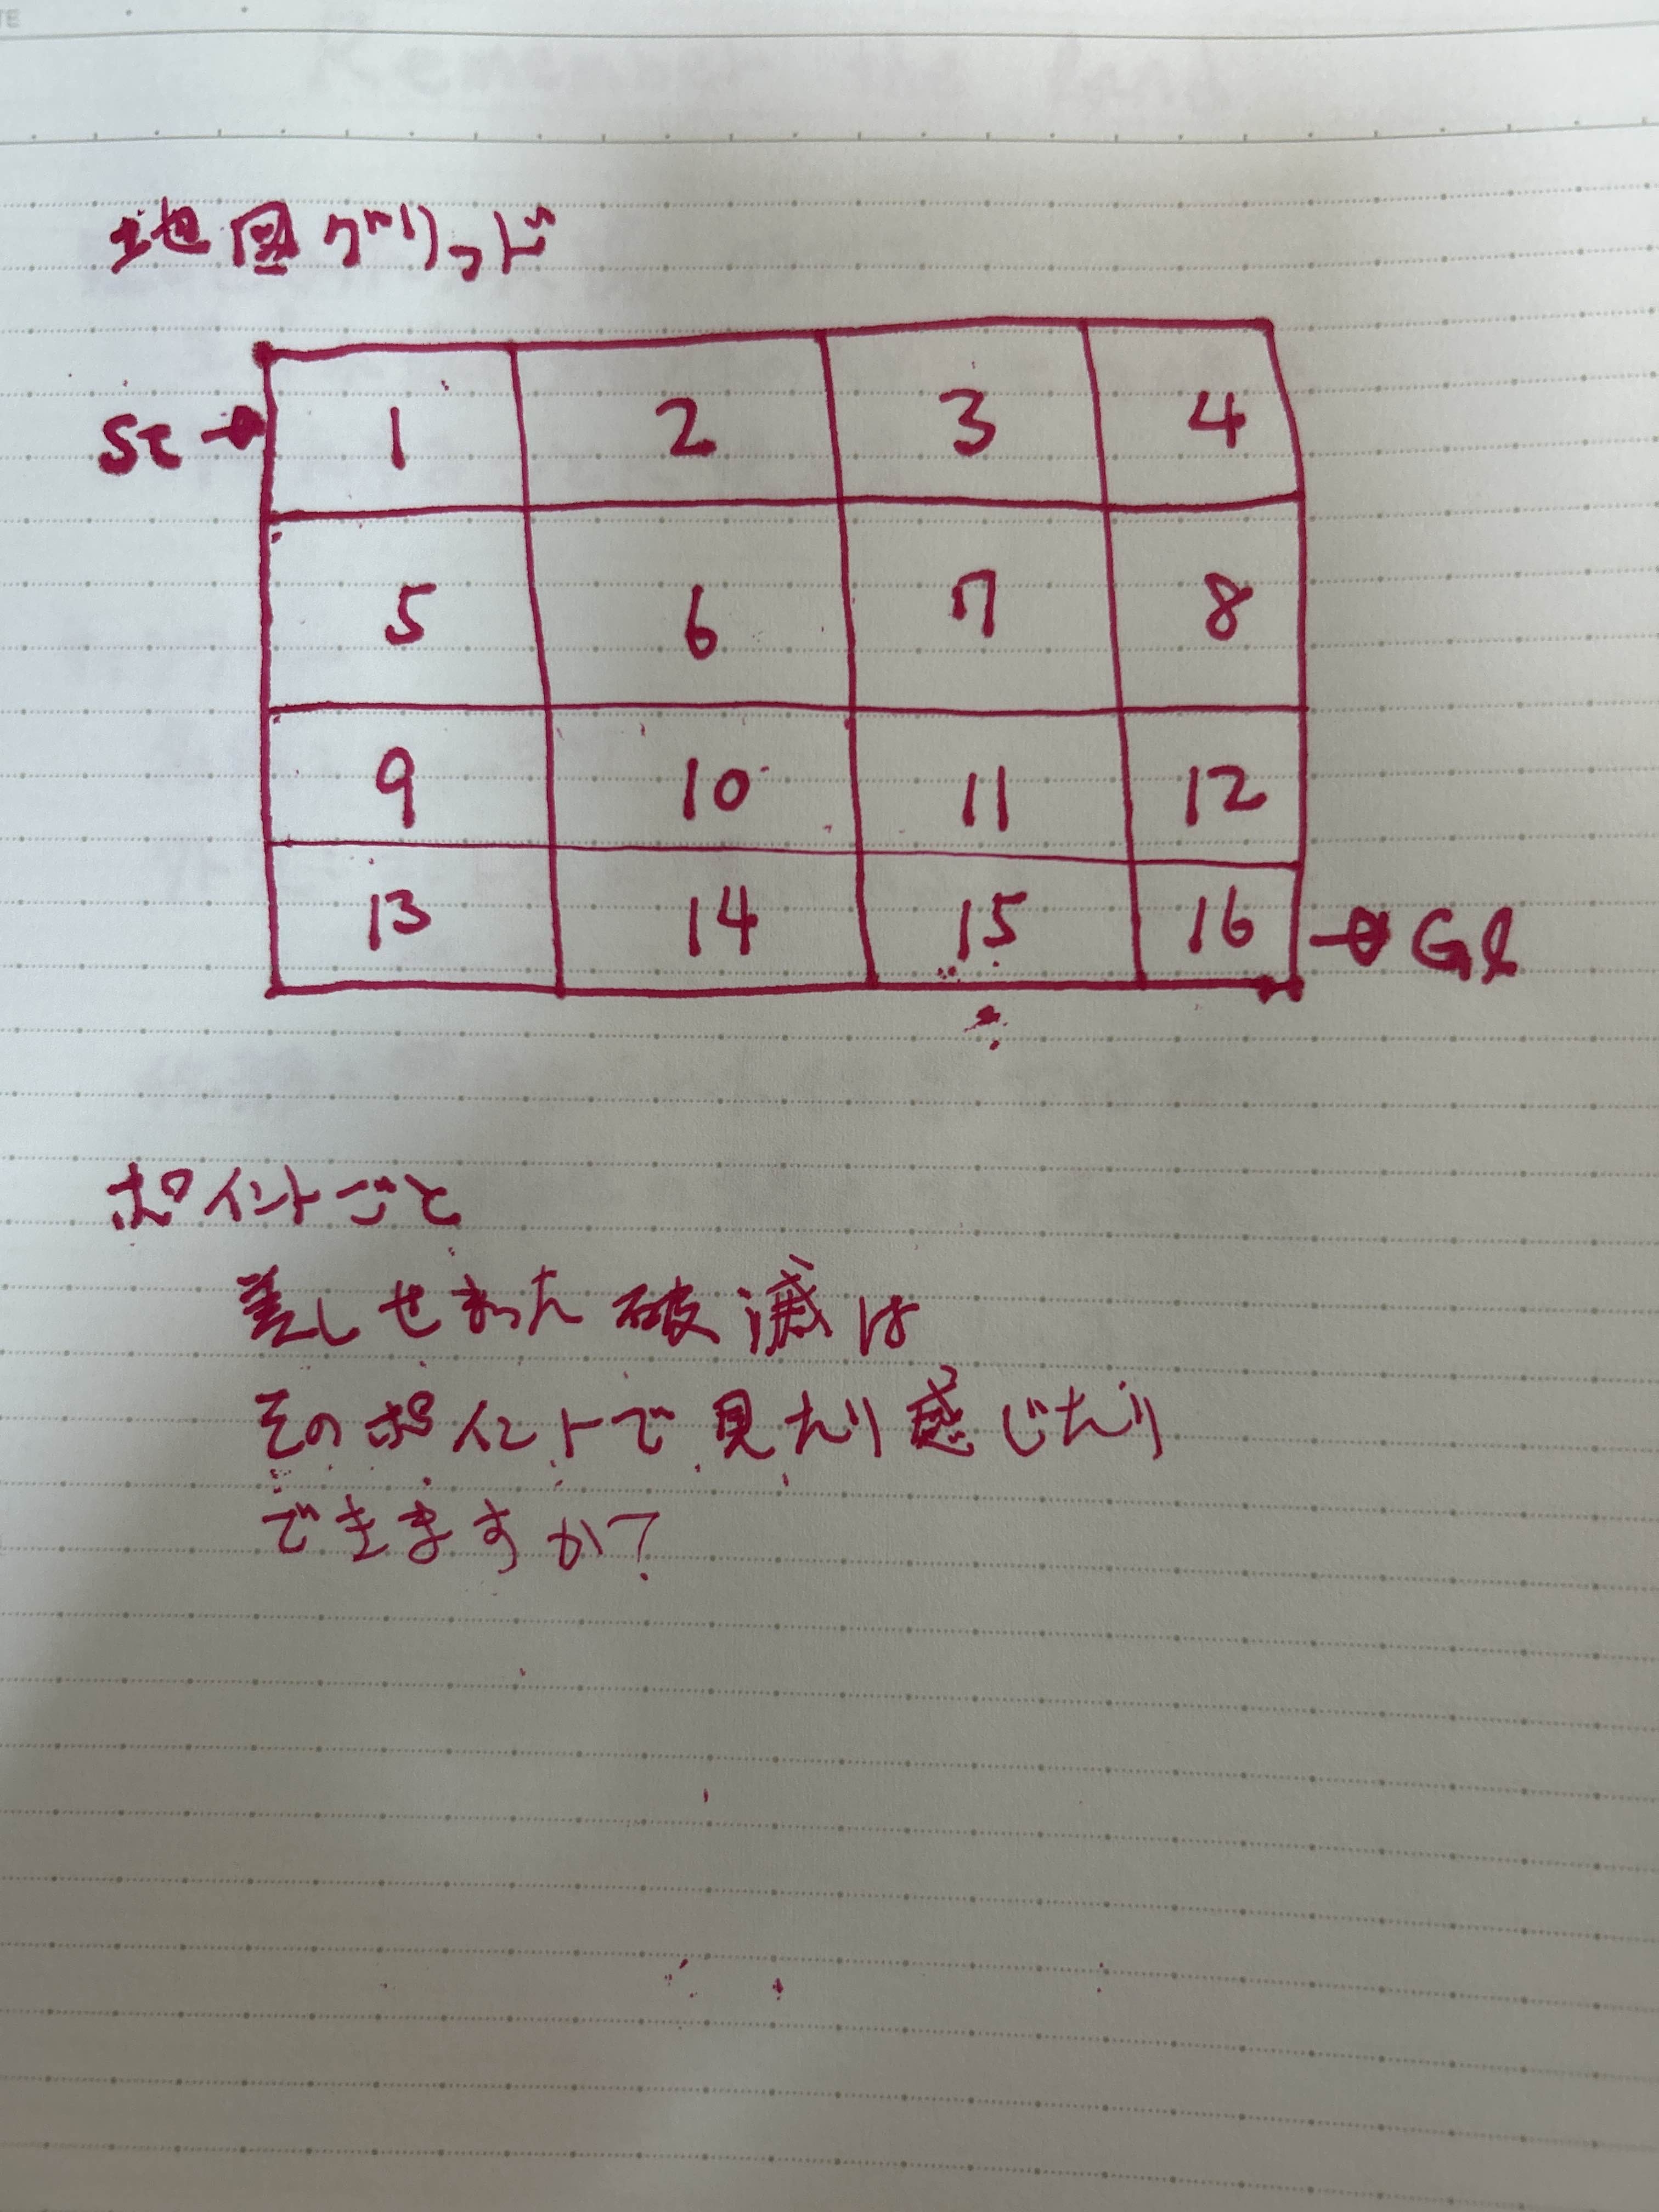 地図グリッド
1 2 3 4
St → 5 6 7 8
9 10 11 12
13 14 15 16 → Gl
ポイントごと
差しせまった破滅は
そのポイントで見たり感じたり
できますか?